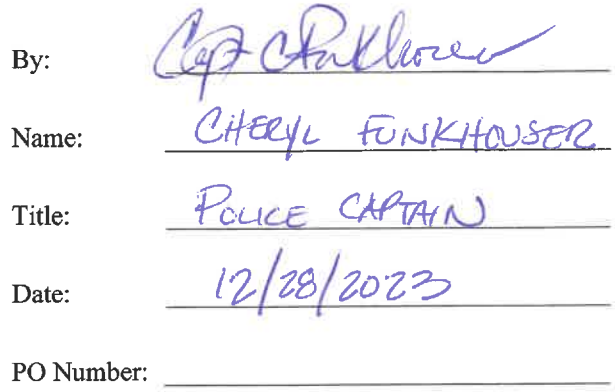 By: Capt CFunkhouser
Name: CHERYL FUNKHOUSER
Title: POLICE CAPTAIN
Date: 12/28/2023
PO Number: